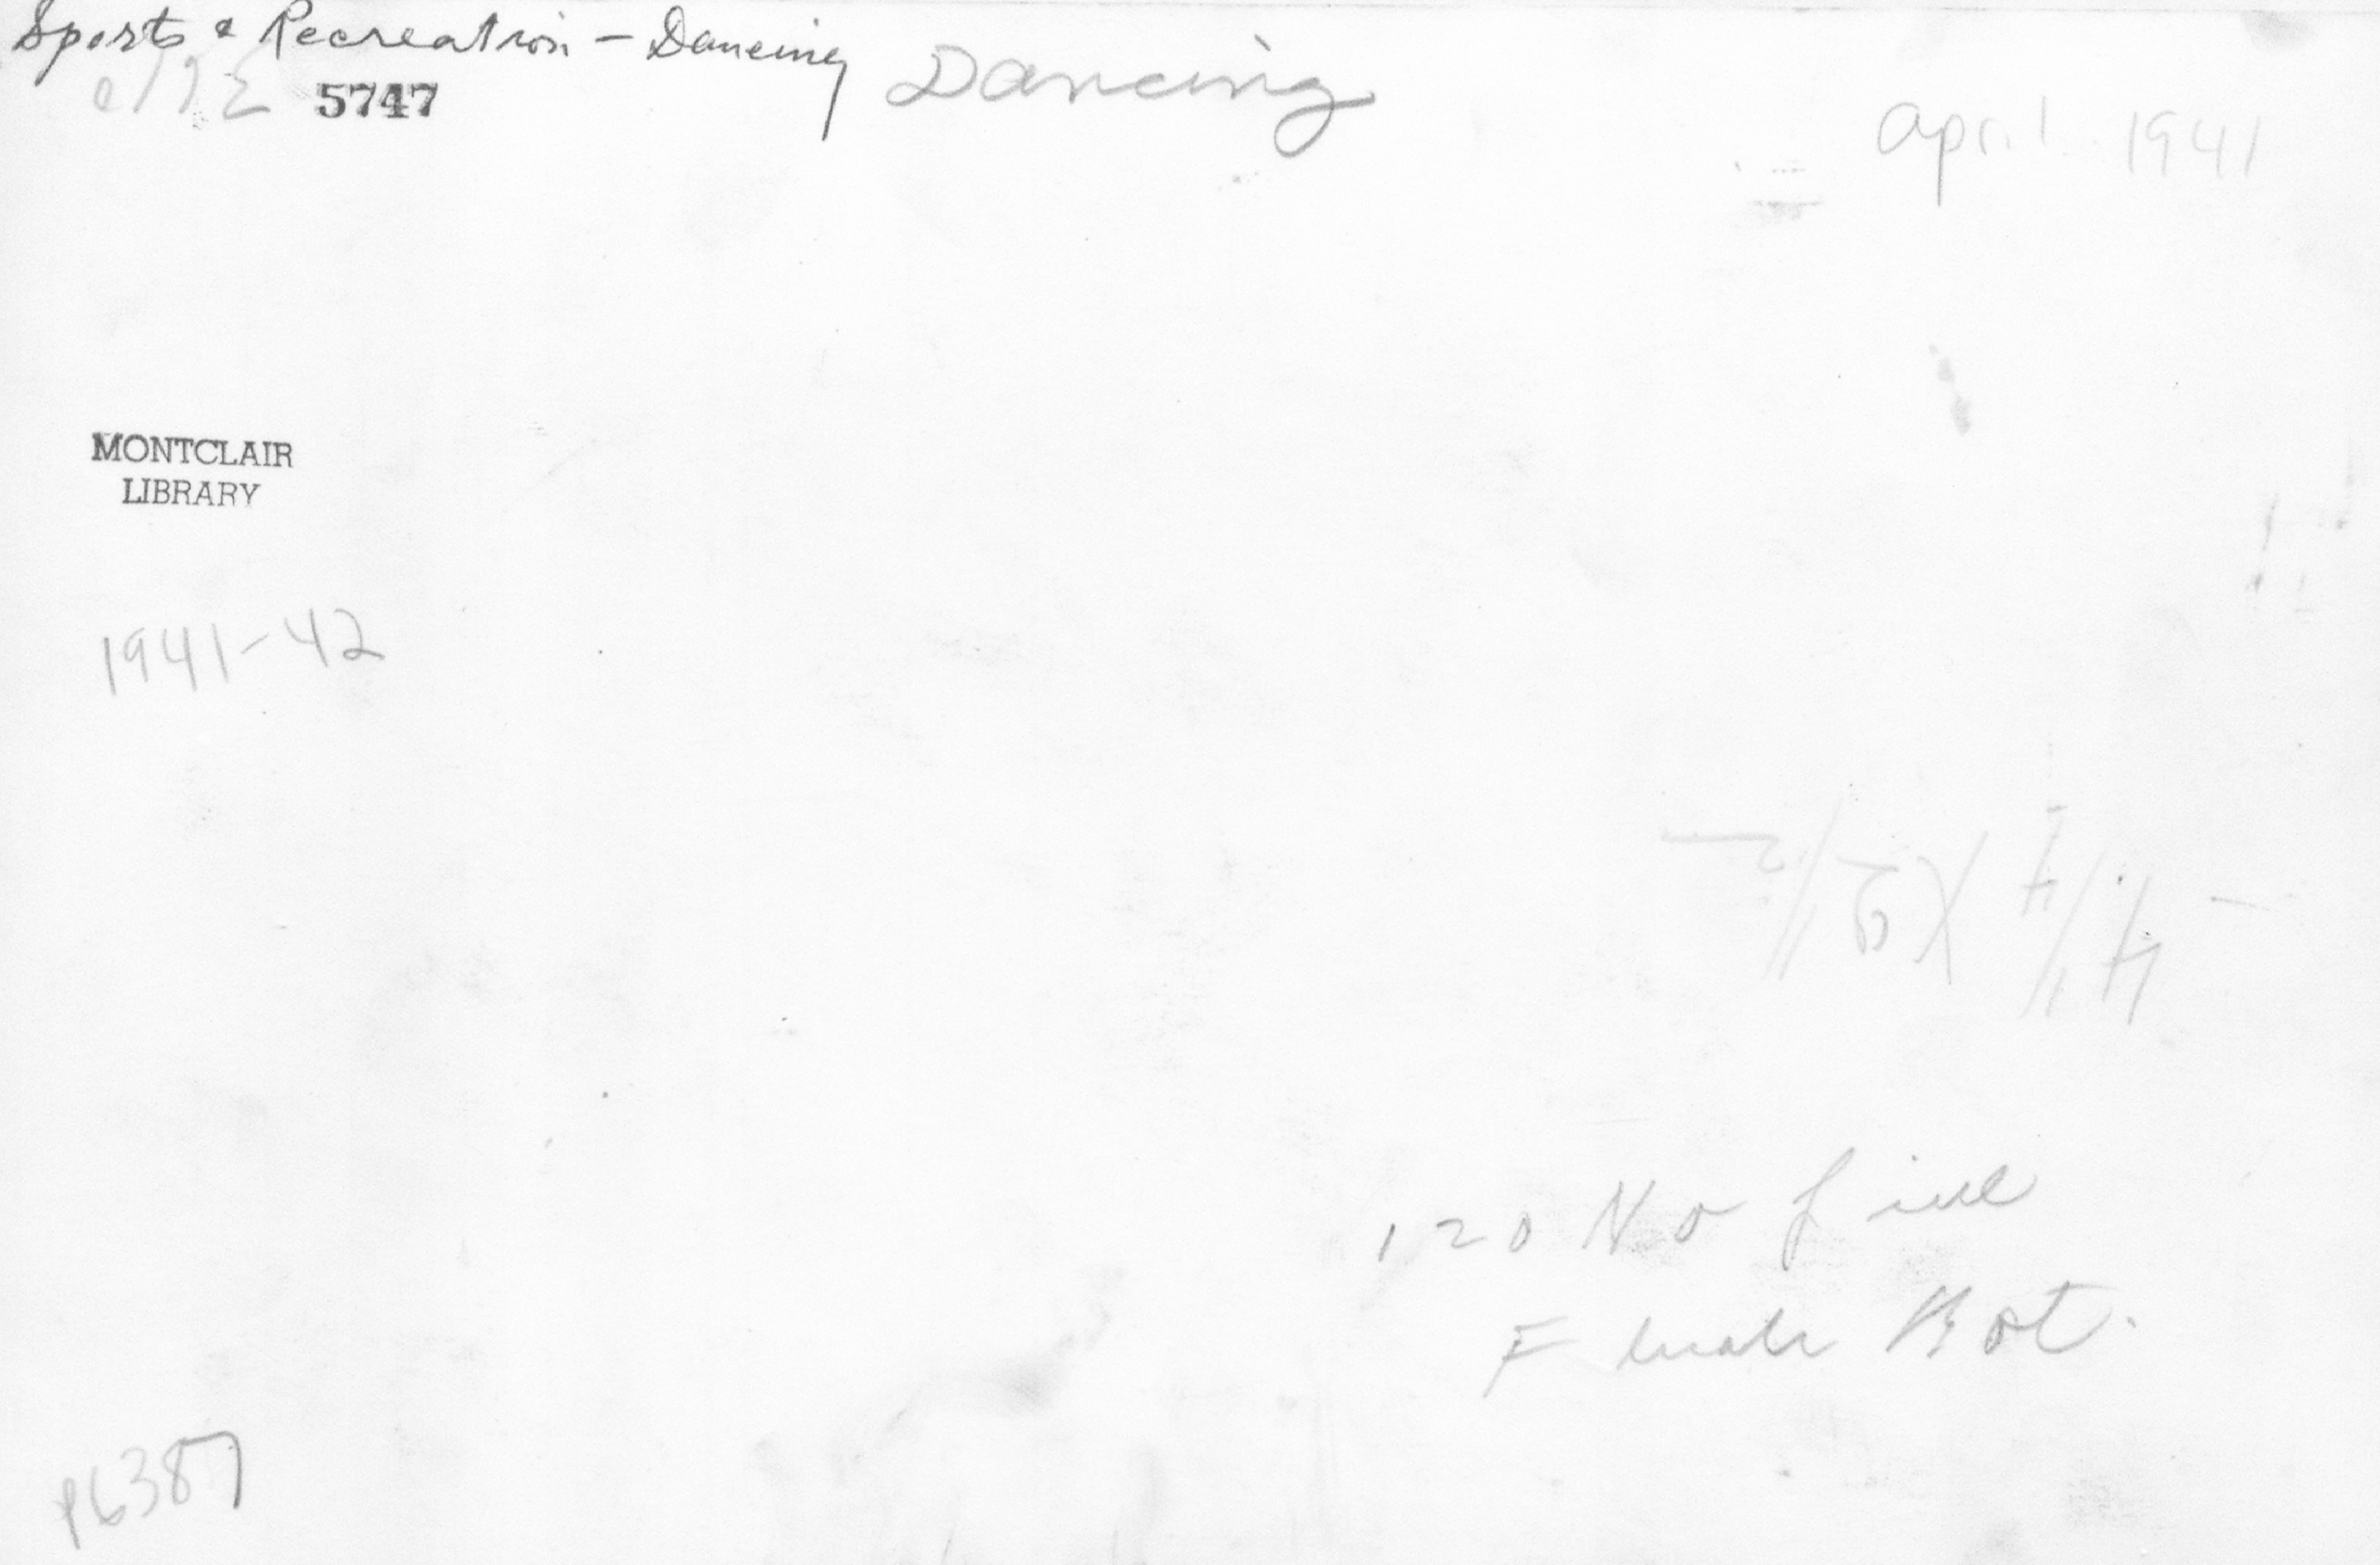 Sports & Recreation - Dancing
Dancing
5747
April 1941
MONTCLAIR
LIBRARY
1941-42
120 No line
Bot.
P6387